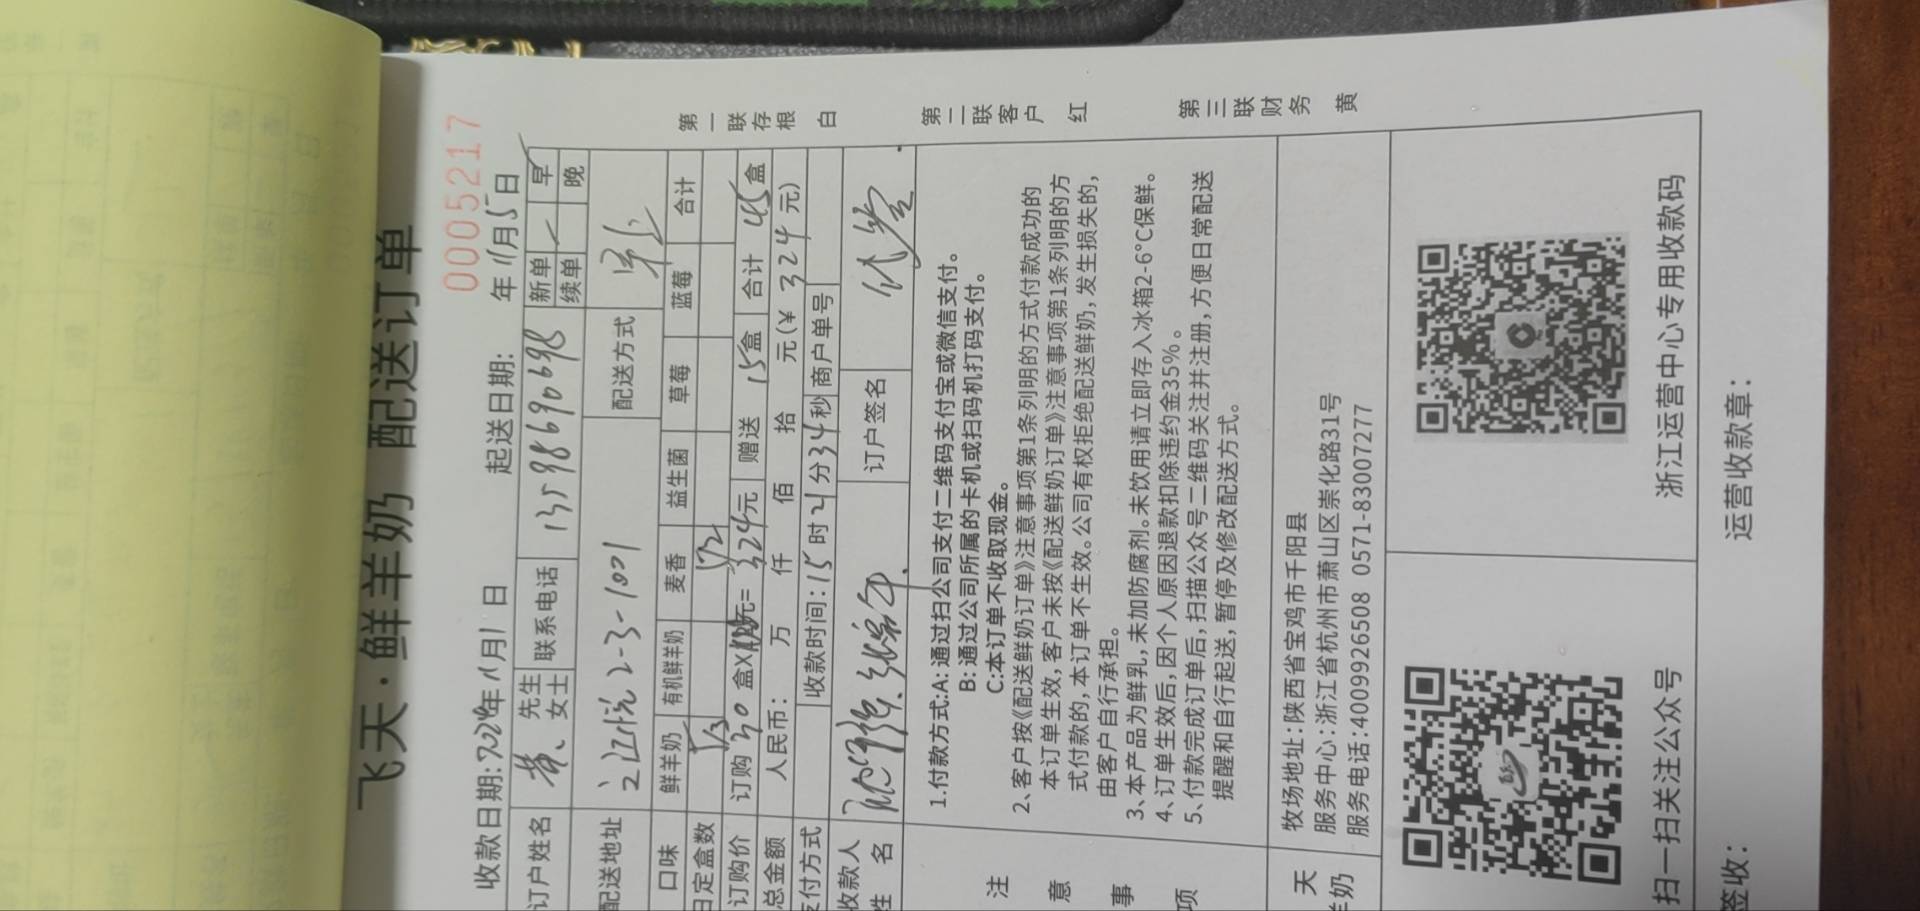 飞天·鲜羊奶 配送订单
0005217
收款日期:2024年11月1日 起送日期: 年11月5日
订户姓名 黄 先生 女士 联系电话 13598690698 新单 早
续单 晚
配送地址 2-3-1001 配送方式
口味 鲜羊奶 有机鲜羊奶 麦香 益生菌 草莓 蓝莓 合计
日定盒数
订购价 订购 30 盒X 元= 324元 赠送 15盒 合计 45盒
总金额 人民币: 万 仟 佰 拾 元(¥ 324 元)
支付方式 收款时间:15时21分34秒 商户单号
收款人姓名 订户签名
注意事项
1.付款方式:A: 通过扫公司支付二维码支付宝或微信支付。
B: 通过公司所属的卡机或扫码机打码支付。
C:本订单不收取现金。
2、客户按《配送鲜奶订单》注意事项第1条列明的方式付款成功的
本订单生效,客户未按《配送鲜奶订单》注意事项第1条列明的方
式付款的,本订单不生效。公司有权拒绝配送鲜奶,发生损失的,
由客户自行承担。
3、本产品为鲜乳,未加防腐剂。未饮用请立即存入冰箱2-6°C保鲜。
4、订单生效后,因个人原因退款扣除违约金35%。
5、付款完成订单后,扫描公众号二维码关注并注册,方便日常配送
提醒和自行起送,暂停及修改配送方式。
天
羊奶
牧场地址:陕西省宝鸡市千阳县
服务中心:浙江省杭州市萧山区崇化路31号
服务电话:4009926508 0571-83007277
扫一扫关注公众号
浙江运营中心专用收款码
签收:
运营收款章:
第一联存根 白
第二联客户 红
第三联财务 黄